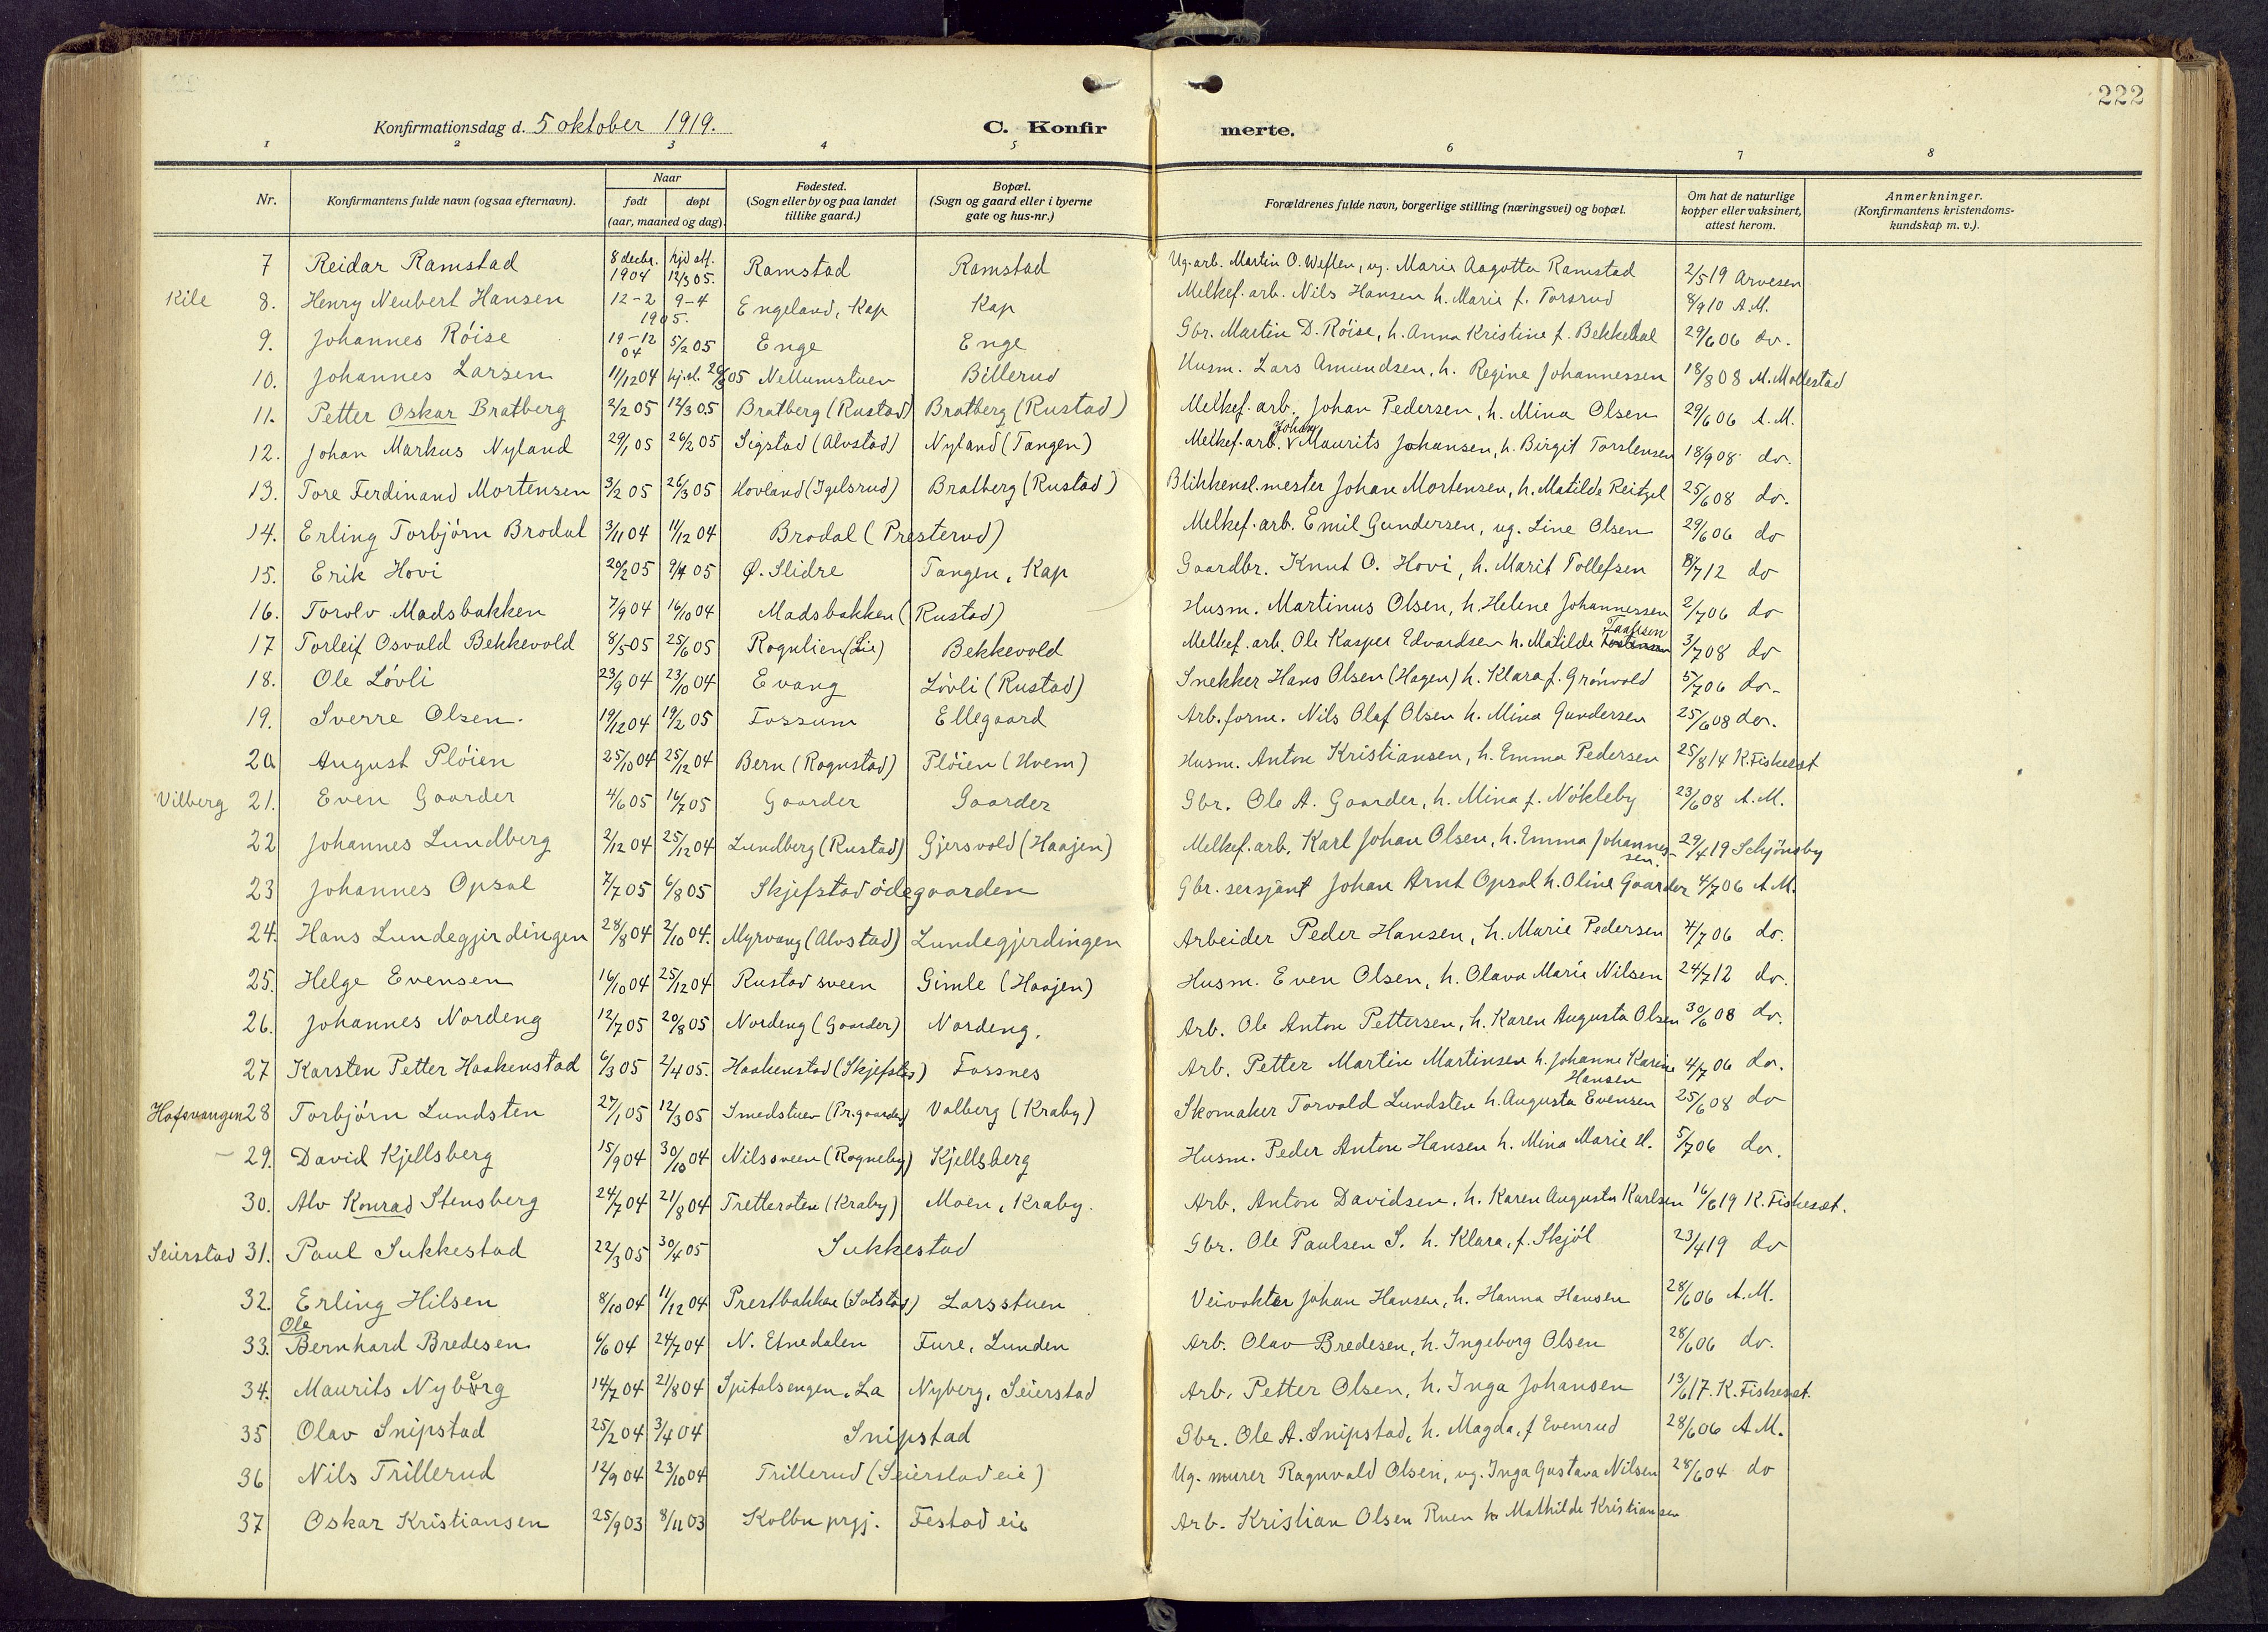 222
Konfirmationsdag d. 5 oktober 1919. C. Konfir merte.
1 2 3 4 5 6 7 8
Nr. Konfirmantens fulde navn (ogsaa efternavn). Naar født døpt (aar, maaned og dag). Fødested. (Sogn eller by og paa landet tillike gaard.) Bopæl. (Sogn og gaard eller i byerne gate og hus-nr.) Forældrenes fulde navn, borgerlige stilling (næringsvei) og bopæl. Om hat de naturlige kopper eller vaksinert, attest herom. Anmerkninger. (Konfirmantens kristendoms-kundskap m. v.).
7 Reidar Ramstad 8 decbr. 1904 hjd. 12/3 05. Ramstad Ramstad Ug. arb. Martin O. Weflen, ug. Marie Aagotta Ramstad 2/5 19 Arvesen
Kile 8. Henry Neubert Hansen 12-2 9-4 1905. Engeland, Kap Kap Melkef. arb. Nils Hansen h. Marie f. Torsrud 8/9 10 A.M.
9. Johannes Röise 19-12 04 5/2 05 Enge Enge Gbr. Martin D. Röise, h. Anna Kristine f. Bekkedal 29/6 06 do.
10. Johannes Larsen 11/12 04 hj.d. 26/2 05 Nettumstuen Billerud Husm. Lars Amundsen, h. Regine Johannessen 18/8 08 M. Mollestad
11. Petter Oskar Bratberg 2/2 05 12/3 05 Bratberg (Rustad) Bratberg (Rustad) Melkef. arb. Johan Pedersen, h. Mina Olsen 29/6 06 A.M.
12. Johan Markus Nyland 29/1 05 26/2 05 Sigstad (Alvstad) Nyland (Tangen) Melkef. arb. Johan Maurits Johansen, h. Birgit Torstensen 18/9 08 do.
13. Tore Ferdinand Mortensen 3/2 05 26/3 05 Hovland (Igelsrud) Bratberg (Rustad) Blikkensl. mester Johan Mortensen, h. Matilde Reitzel 25/6 08 do.
14. Erling Torbjörn Brodal 3/11 04 11/12 04 Brodal (Presterud) Melkef. arb. Emil Gundersen, ug. Line Olsen 29/6 06 do
15. Erik Hovi 20/2 05 9/4 05 Ø. Slidre Tangen, Kap Gaardbr. Knut O. Hovi, h. Marit Tollefsen 8/7 12 do
16. Torolv Madsbakken 7/9 04 16/10 04 Madsbakken (Rustad) Husm. Martinus Olsen, h. Helene Johannessen 2/7 06 do
17 Torleif Osvald Bekkevold 8/5 05 25/6 05 Rognlien (Lie) Bekkevold Melkef. arb. Ole Kasper Edvardsen h. Matilde 3/7 08 do
18. Ole Lövli 23/9 04 23/10 04 Evang Lövli (Rustad) Snekker Hans Olsen (Hagen) h. Klara f. Grönvold 5/7 06 do.
19. Sverre Olsen. 19/12 04 19/2 05 Fossum Ellegaard Arb. form. Nils Olaf Olsen h. Mina Gundersen 25/6 08 do.
20 August Plöien 25/10 04 25/12 04 Bern (Rognstad) Plöien (Hvem) Husm. Anton Kristiansen, h. Emma Pedersen 25/8 14 K. Fiskeset
Vilberg 21. Even Gaarder 4/6 05 16/7 05 Gaarder Gaarder Gbr. Ole A. Gaarder, h. Mina f. Nökleby 23/6 08 A.M.
22 Johannes Lundberg 2/12 04 25/12 04 Lundberg (Rustad) Gjersvold (Haajen) Melkef. arb. Karl Johan Olsen, h. Emma Johannes-sen. 29/4 19 Schjönsby
23 Johannes Opsal 7/7 05 6/8 05 Skjefstad ödegaarden Gbr. sersjant Johan Arnt Opsal h. Oline Gaarder 4/7 06 A.M.
24. Hans Lundegjerdingen 28/8 04 2/10 04. Myrvang (Alvstad) Lundegjerdingen Arbeider Peder Hansen, h. Marie Pedersen 4/7 06 do.
25. Helge Evensen 16/10 04 25/12 04 Rustadsveen Gimle (Haajen) Husm. Even Olsen, h. Olava Marie Nilsen 24/7 12 do.
26. Johannes Nordeng 12/7 05 20/8 05 Nordeng (Gaarder) Nordeng. Arb. Ole Anton Pettersen, h. Karen Augusta Olsen 30/6 08 do.
27 Karsten Petter Haakenstad 6/3 05 2/4 05. Haakenstad (Skjefstad) Fossnes Arb. Petter Martin Martinsen h. Johanne Karine Hansen 4/7 06 do.
Hofsvangen 28 Torbjörn Lundsten 27/1 05 12/3 05 Smedstuen (Pr.gaarden) Valberg (Kraby) Skomaker Torvald Lundsten h. Augusta Evensen 25/6 08 do
– 29. David Kjellsberg 15/9 04 30/10 04 Nilssveen (Rogneby) Kjellsberg Husm. Peder Anton Hansen h. Mina Marie H. 5/7 06 do.
30. Alv Konrad Stensberg 24/7 04 21/8 04 Tretteroten (Kraby) Moen, Kraby. Arb. Anton Davidsen, h. Karen Augusta Karlsen 16/6 19 K. Fiskeset.
Seierstad 31. Paul Sukkestad 22/3 05 30/4 05 Sukkestad Gbr. Ole Paulsen S. h. Klara, f. Skjöl 23/4 19 do
32. Erling Hilsen 8/10 04 11/12 04 Prestbakken (Satstad) Larsstuen Veivokter Johan Hansen, h. Hanna Hansen 28/6 06 A.M.
33. Ole Bernhard Bredesen 6/6 04 24/7 04 N. Etnedalen Fure, Lunden Arb. Olav Bredesen, h. Ingeborg Olsen 28/6 06 do.
34. Maurits Nyberg 14/7 04 21/8 04 Spitalsengen, La Nyberg, Seierstad Arb. Petter Olsen, h. Inga Johansen 13/6 17. K. Fiskeset.
35 Olav Snipstad 25/2 04 3/4 04 Snipstad Gbr. Ole A. Snipstad, h. Magda, f Evenrud 28/6 06 A.M.
36 Nils Trillerud 12/9 04 23/10 04 Trillerud (Seierstad eie) Ug. murer Ragnvald Olsen, ug. Inga Gustava Nilsen 28/6 04 do
37 Oskar Kristiansen 25/9 03 8/11 03 Kolbu prgj. Festad eie Arb. Kristian Olsen Ruen h Mathilde Kristiansen